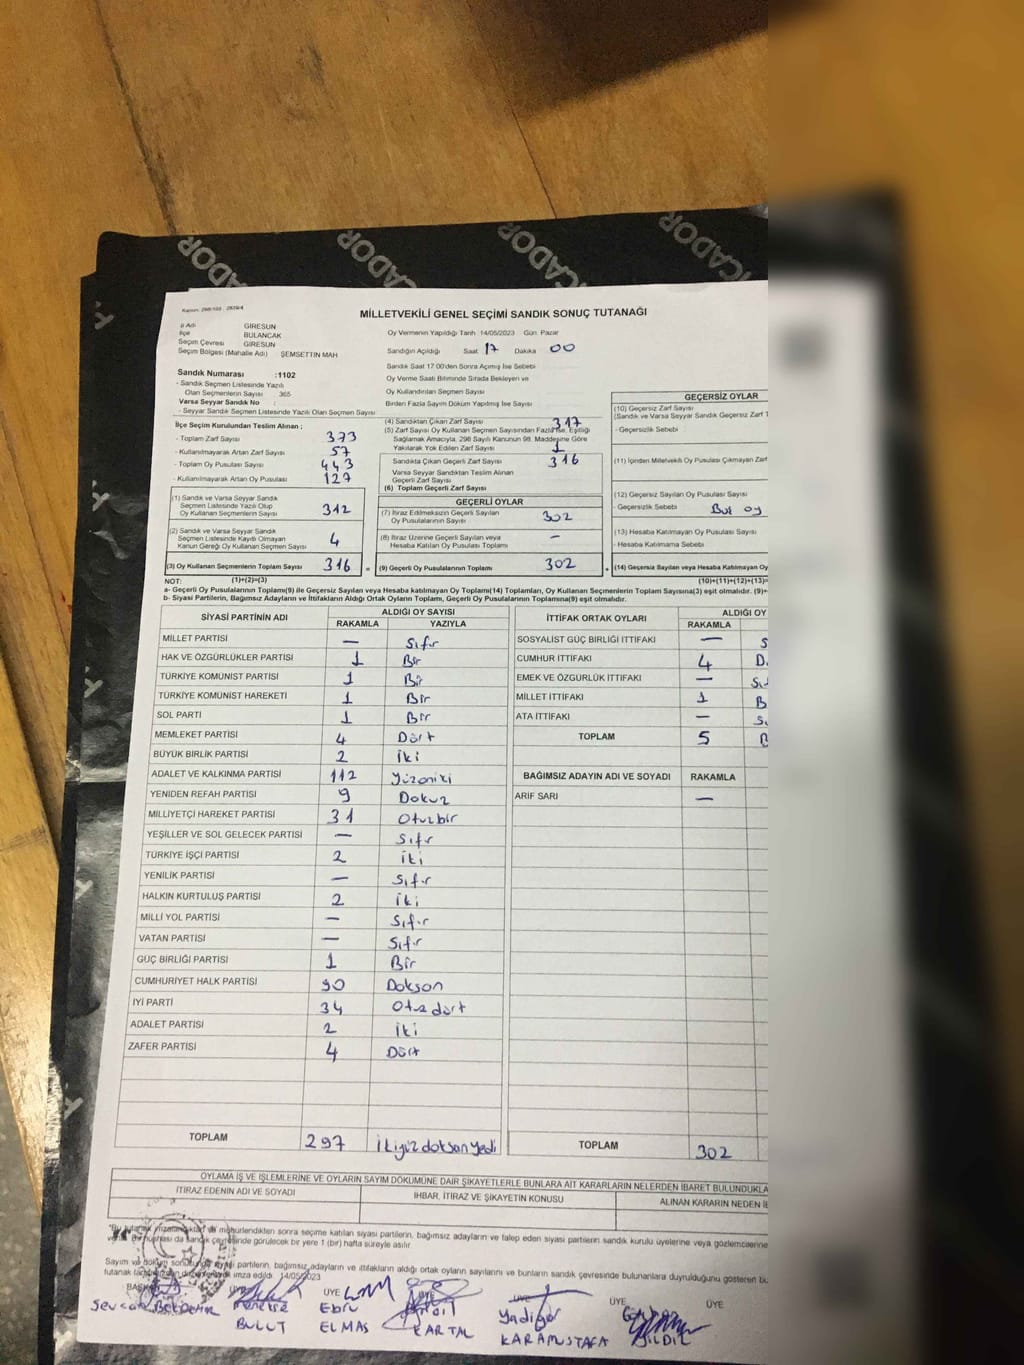 CADOR
CADOR
CADOR
CADOR
MİLLETVEKİLİ GENEL SEÇİMİ SANDIK SONUÇ TUTANAĞI
İl Adı GİRESUN
İlçe BULANCAK
Seçim Çevresi GİRESUN
Seçim Bölgesi (Mahalle Adı) ŞEMSETTİN MAH
Oy Vermenin Yapıldığı Tarih 14/05/2023 Gün Pazar
Sandığın Açıldığı Saat 17 Dakika 00
Sandık Saat 17:00'den Sonra Açılmış İse Sebebi
Oy Verme Saati Bitiminde Sırada Bekleyen ve
Oy Kullandırılan Seçmen Sayısı
Birden Fazla Sayım Döküm Yapılmış İse Sayısı
Sandık Numarası :1102
- Sandık Seçmen Listesinde Yazılı
Olan Seçmenlerin Sayısı : 365
Varsa Seyyar Sandık No :
- Seyyar Sandık Seçmen Listesinde Yazılı Olan Seçmen Sayısı
İlçe Seçim Kurulundan Teslim Alınan :
- Toplam Zarf Sayısı 373
- Kullanılmayarak Artan Zarf Sayısı 57
- Toplam Oy Pusulası Sayısı 443
- Kullanılmayarak Artan Oy Pusulası 127
(1) Sandık ve Varsa Seyyar Sandık
Seçmen Listesinde Yazılı Olup
Oy Kullanan Seçmen Sayısı 312
(2) Sandık ve Varsa Seyyar Sandık
Seçmen Listesinde Kaydı Olmayan
Kanun Gereği Oy Kullanan Seçmen Sayısı 4
(3) Oy Kullanan Seçmenlerin Toplam Sayısı 316 =
(4) Sandıktan Çıkan Zarf Sayısı 317
(5) Zarf Sayısı Oy Kullanan Seçmen Sayısından Fazla ise, Eşitliği
Sağlamak Amacıyla, 298 Sayılı Kanunun 98. Maddesine Göre
Yakılarak Yok Edilen Zarf Sayısı 1
Sandıkta Çıkan Geçerli Zarf Sayısı 316
Varsa Seyyar Sandıktan Teslim Alınan
Geçerli Zarf Sayısı
(6) Toplam Geçerli Zarf Sayısı
GEÇERLİ OYLAR
(7) İtiraz Edilmeksizin Geçerli Sayılan
Oy Pusulalarının Sayısı 302
(8) İtiraz Üzerine Geçerli Sayılan veya
Hesaba Katılan Oy Pusulası Toplamı -
(9) Geçerli Oy Pusulalarının Toplamı 302 +
GEÇERSİZ OYLAR
(10) Geçersiz Zarf Sayısı
(Sandık ve Varsa Seyyar Sandık Geçersiz Zarf
- Geçersizlik Sebebi
(11) İçinden Milletvekili Oy Pusulası Çıkmayan Zarf
(12) Geçersiz Sayılan Oy Pusulası Sayısı
- Geçersizlik Sebebi Boş oy
(13) Hesaba Katılmayan Oy Pusulası Sayısı
- Hesaba Katılmama Sebebi
(14) Geçersiz Sayılan veya Hesaba Katılmayan Oy
NOT: (1)+(2)=(3) (10)+(11)+(12)+(13)=
a- Geçerli Oy Pusulalarının Toplamı(9) ile Geçersiz Sayılan veya Hesaba katılmayan Oy Toplamı(14) Toplamları, Oy Kullanan Seçmenlerin Toplam Sayısına(3) eşit olmalıdır. (9)+
b- Siyasi Partilerin, Bağımsız Adayların ve İttifakların Aldığı Ortak Oyların Toplamı, Geçerli Oy Pusulalarının Toplamına(9) eşit olmalıdır.
SİYASİ PARTİNİN ADI ALDIĞI OY SAYISI
RAKAMLA YAZIYLA
MİLLET PARTİSİ - Sıfır
HAK VE ÖZGÜRLÜKLER PARTİSİ 1 Bir
TÜRKİYE KOMÜNİST PARTİSİ 1 Bir
TÜRKİYE KOMÜNİST HAREKETİ 1 Bir
SOL PARTİ 1 Bir
MEMLEKET PARTİSİ 4 Dört
BÜYÜK BİRLİK PARTİSİ 2 iki
ADALET VE KALKINMA PARTİSİ 112 Yüzoniki
YENİDEN REFAH PARTİSİ 9 Dokuz
MİLLİYETÇİ HAREKET PARTİSİ 31 Otuzbir
YEŞİLLER VE SOL GELECEK PARTİSİ - Sıfır
TÜRKİYE İŞÇİ PARTİSİ 2 iki
YENİLİK PARTİSİ - Sıfır
HALKIN KURTULUŞ PARTİSİ 2 iki
MİLLİ YOL PARTİSİ - Sıfır
VATAN PARTİSİ - Sıfır
GÜÇ BİRLİĞİ PARTİSİ 1 Bir
CUMHURİYET HALK PARTİSİ 90 Doksan
İYİ PARTİ 34 Otuz dört
ADALET PARTİSİ 2 iki
ZAFER PARTİSİ 4 Dört
TOPLAM 297 ikiyüzdoksanyedi
İTTİFAK ORTAK OYLARI ALDIĞI OY
RAKAMLA
SOSYALİST GÜÇ BİRLİĞİ İTTİFAKI - S
CUMHUR İTTİFAKI 4 D
EMEK VE ÖZGÜRLÜK İTTİFAKI - Sı
MİLLET İTTİFAKI 1 B
ATA İTTİFAKI - S
TOPLAM 5 B
BAĞIMSIZ ADAYIN ADI VE SOYADI RAKAMLA
ARİF SARI -
TOPLAM 302
OYLAMA İŞ VE İŞLEMLERİNE VE OYLARIN SAYIM DÖKÜMÜNE DAİR ŞİKAYETLERLE BUNLARA AİT KARARLARIN NELERDEN İBARET BULUNDUKLA
İTİRAZ EDENİN ADI VE SOYADI İHBAR, İTİRAZ VE ŞİKAYETİN KONUSU ALINAN KARARIN NEDEN İB
mühürlendikten sonra seçime katılan siyasi partilerin, bağımsız adayların ve talep eden siyasi partilerin sandık kurulu üyelerine veya gözlemcilerine
görülecek bir yere 1 (bir) hafta süreyle asılır.
Sayım ve döküm partilerin, bağımsız adayların ve ittifakların aldığı ortak oyların sayılarını ve bunların sandık çevresinde bulunanlara duyrulduğunu gösteren
tutanak imza edildi. 14/05/2023
ÜYE ÜYE ÜYE ÜYE ÜYE
Sevcan Ebru Yadigar
BULUT ELMAS KARTAL KARAMUSTAFA